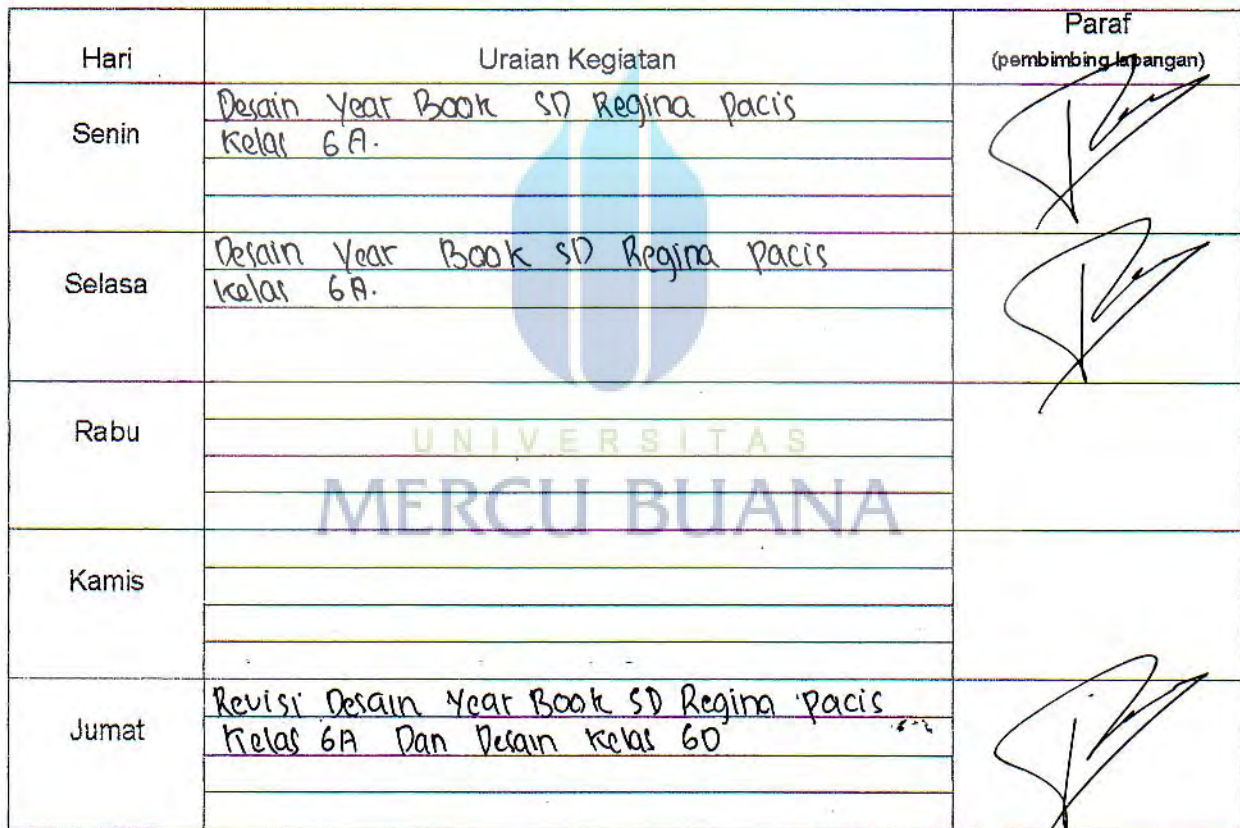 Hari Uraian Kegiatan Paraf
(pembimbing lapangan)
Senin
Desain Year Book SD Regina Pacis
Kelas 6A.
Selasa
Desain Year Book SD Regina Pacis
Kelas 6A.
Rabu
UNIVERSITAS
MERCU BUANA
Kamis
Jumat
Revisi Desain Year Book SD Regina Pacis
Kelas 6A Dan Desain Kelas 6D